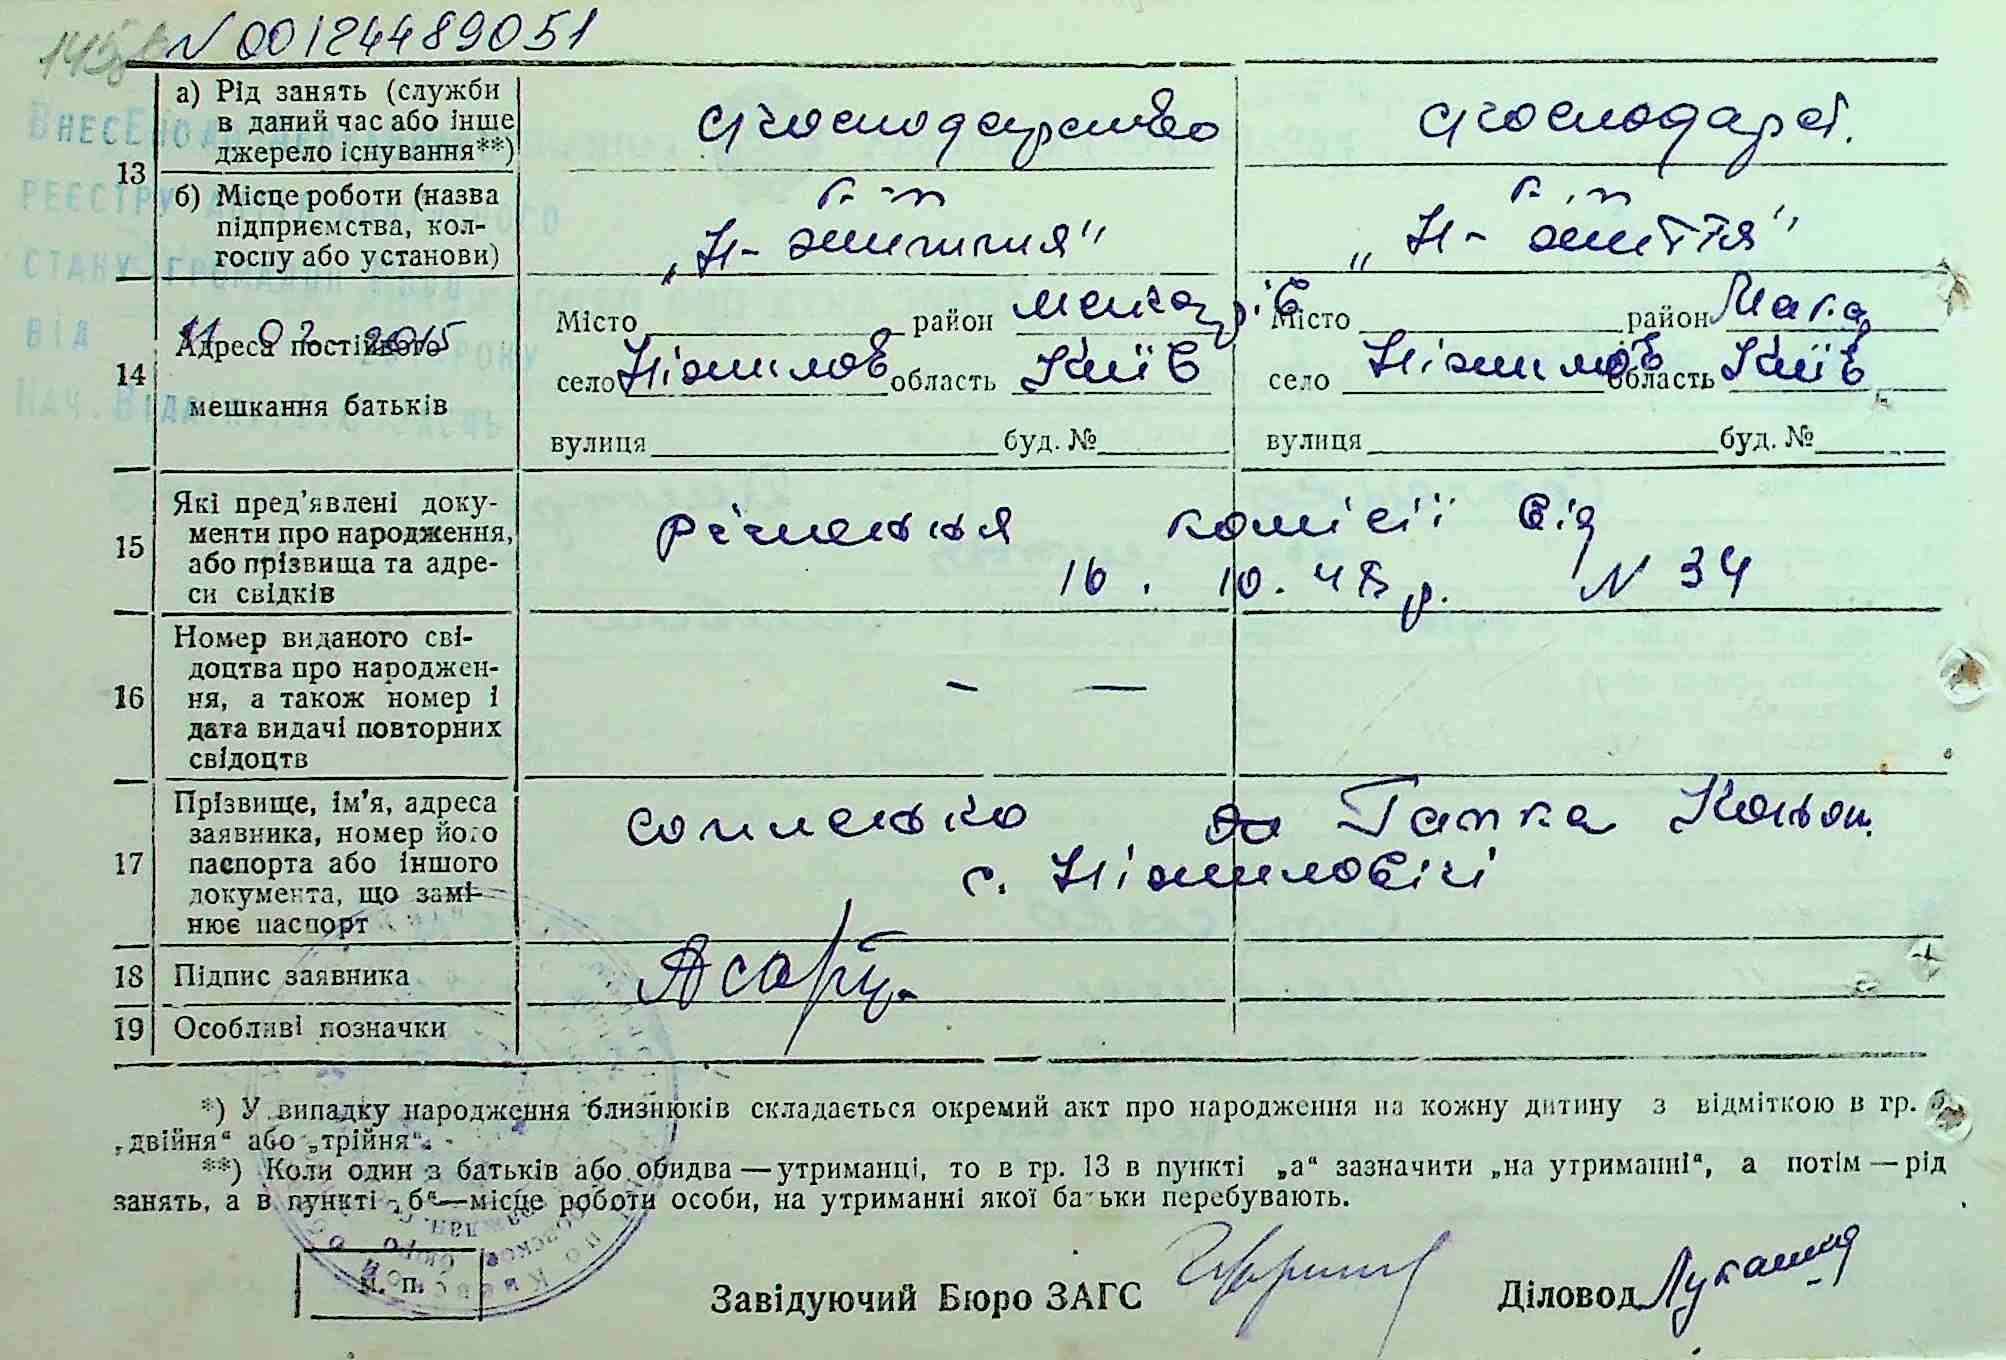 N 00124489051
ВНЕСЕНО ДО
РЕЄСТРУ АКТІВ ЦИВІЛЬНОГО
СТАНУ ГРОМАДЯН
ВІД 11 02 2015 РОКУ
НАЧ. ВІДДІЛУ
13 а) Рід занять (служби в даний час або інше джерело існування**) с/господарство с/господарст.
б) Місце роботи (назва підприємства, колгоспу або установи) к-п „Н-життя" к-п „Н-життя"
14 Адреса постійного мешкання батьків
Місто район Макарів Місто район Мака
село Ніжилов область Київ село Ніжилов область Київ
вулиця буд. № вулиця буд. №
15 Які пред'явлені документи про народження, або прізвища та адреси свідків рішення комісії від
16. 10. 48 р. N 34
16 Номер виданого свідоцтва про народження, а також номер і дата видачі повторних свідоцтв — —
17 Прізвище, ім'я, адреса заявника, номер його паспорта або іншого документа, що замінює паспорт Гапка
с. Ніжиловічі
18 Підпис заявника
19 Особливі позначки
*) У випадку народження близнюків складається окремий акт про народження на кожну дитину з відміткою в гр. 5
„двійня" або „трійня".
**) Коли один з батьків або обидва — утриманці, то в гр. 13 в пункті „а" зазначити „на утриманні", а потім — рід
занять, а в пункті „б"—місце роботи особи, на утриманні якої батьки перебувають.
М. П.
Завідуючий Бюро ЗАГС Діловод